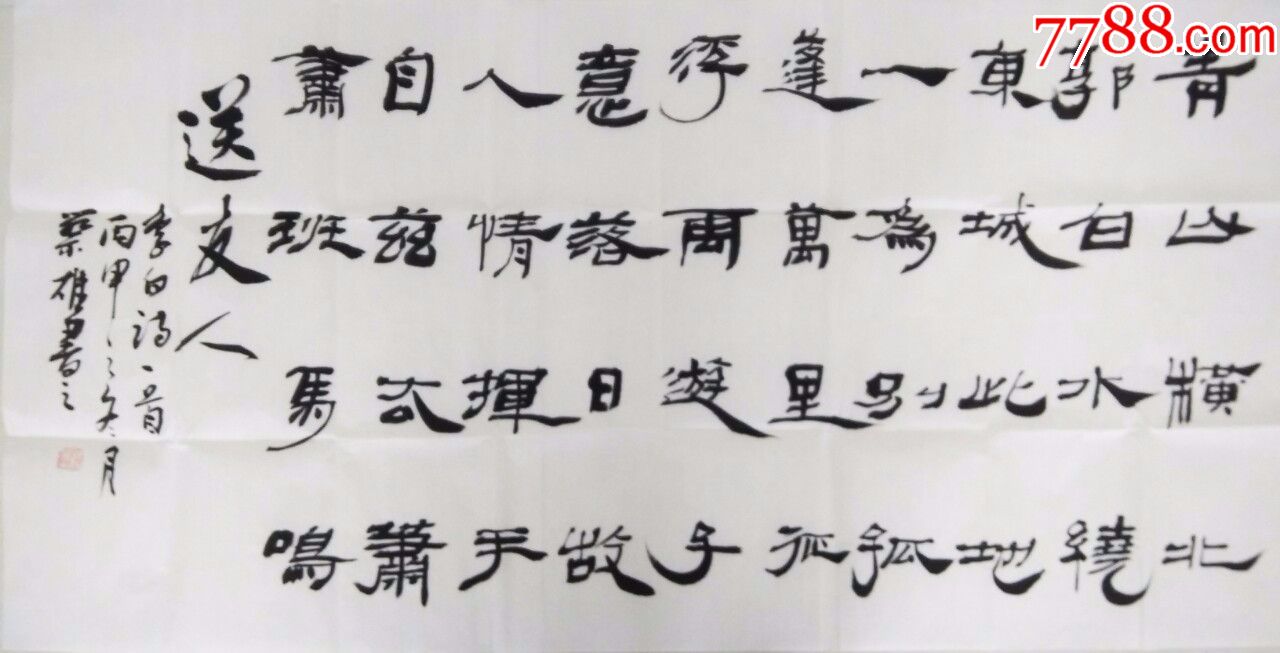 青山橫北
郭白水繞
東城此地
一為別孤
蓬萬里征
浮雨遊子
意落日故
人情揮手
自茲去蕭
蕭班馬鳴
送友人
李白詩一首
丙申之冬月
蔡雄書之
7788.com